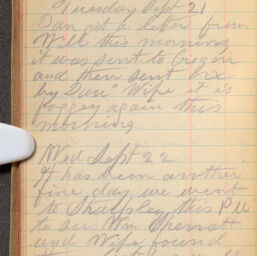 Tuesday Sept 21
Dan got a letter from
Will this morning
it was sent to Oregon
and then sent
by Dan" Wife it is
foggey again this
morning
Wed Sept 22
It has been another
fine day we went
to this P.M
to see Wm
and Wife found